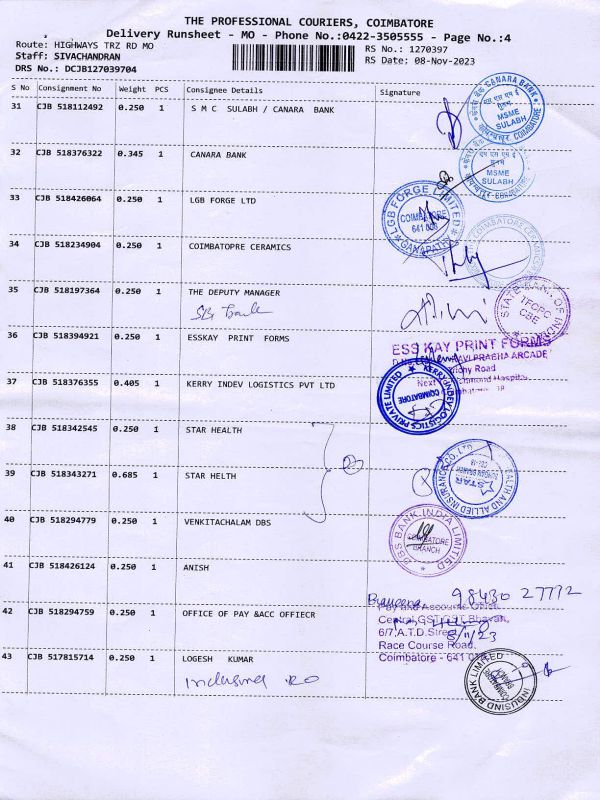 THE PROFESSIONAL COURIERS, COIMBATORE
Delivery Runsheet - MO - Phone No.:0422-3505555 - Page No.:4
Route: HIGHWAYS TRZ RD MO RS No.: 1270397
Staff: SIVACHANDRAN RS Date: 08-Nov-2023
DRS No.: DCJB127039704
S No Consignment No Weight PCS Consignee Details Signature
31 CJB 518112492 0.250 1 S M C SULABH / CANARA BANK
CANARA BANK
एम एस एम ई
MSME
SULABH
COIMBATORE
32 CJB 518376322 0.345 1 CANARA BANK
एम एस एम ई
MSME
SULABH
33 CJB 518426064 0.250 1 LGB FORGE LTD
LGB FORGE LIMITED
COIMBATORE
641 006
GANAPATHY
34 CJB 518234904 0.250 1 COIMBATOPRE CERAMICS
COIMBATORE CERAMICS
35 CJB 518197364 0.250 1 THE DEPUTY MANAGER
SBI Bank
STATE BANK OF INDIA
TFCPC
CBE
36 CJB 518394921 0.250 1 ESSKAY PRINT FORMS
ESS KAY PRINT FORMS
PRABHA ARCADE
Trichy Road
Next
37 CJB 518376355 0.405 1 KERRY INDEV LOGISTICS PVT LTD
KERRY INDEV LOGISTICS PRIVATE LIMITED
COIMBATORE
38 CJB 518342545 0.250 1 STAR HEALTH
39 CJB 518343271 0.685 1 STAR HELTH
HEALTH AND ALLIED INSURANCE CO. LTD
STAR
40 CJB 518294779 0.250 1 VENKITACHALAM DBS
DBS BANK INDIA LIMITED
COIMBATORE
BRANCH
41 CJB 518426124 0.250 1 ANISH
98430 27772
42 CJB 518294759 0.250 1 OFFICE OF PAY &ACC OFFIECR
Pay and Accounts Office,
Central GST, GST Bhavan,
6/7, A.T.D. Street
8/11/23
Race Course Road,
Coimbatore - 641 018
43 CJB 517815714 0.250 1 LOGESH KUMAR
Indusind RO
INDUSIND BANK LIMITED